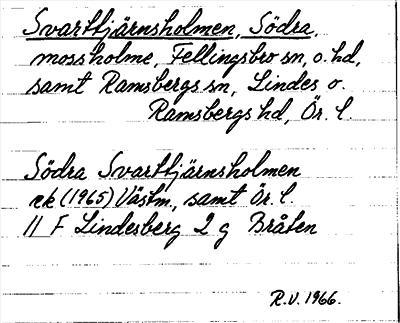 Svarttjärnsholmen, Södra,
mossholme, Fellingsbro sn, o. hd,
samt Ramsbergs sn, Lindes o.
Ramsbergs hd, Ör. l.
Södra Svarttjärnsholmen
ek (1965) Västm., samt Ör. l.
11 F Lindesberg 2 g Bråten
R.V. 1966.